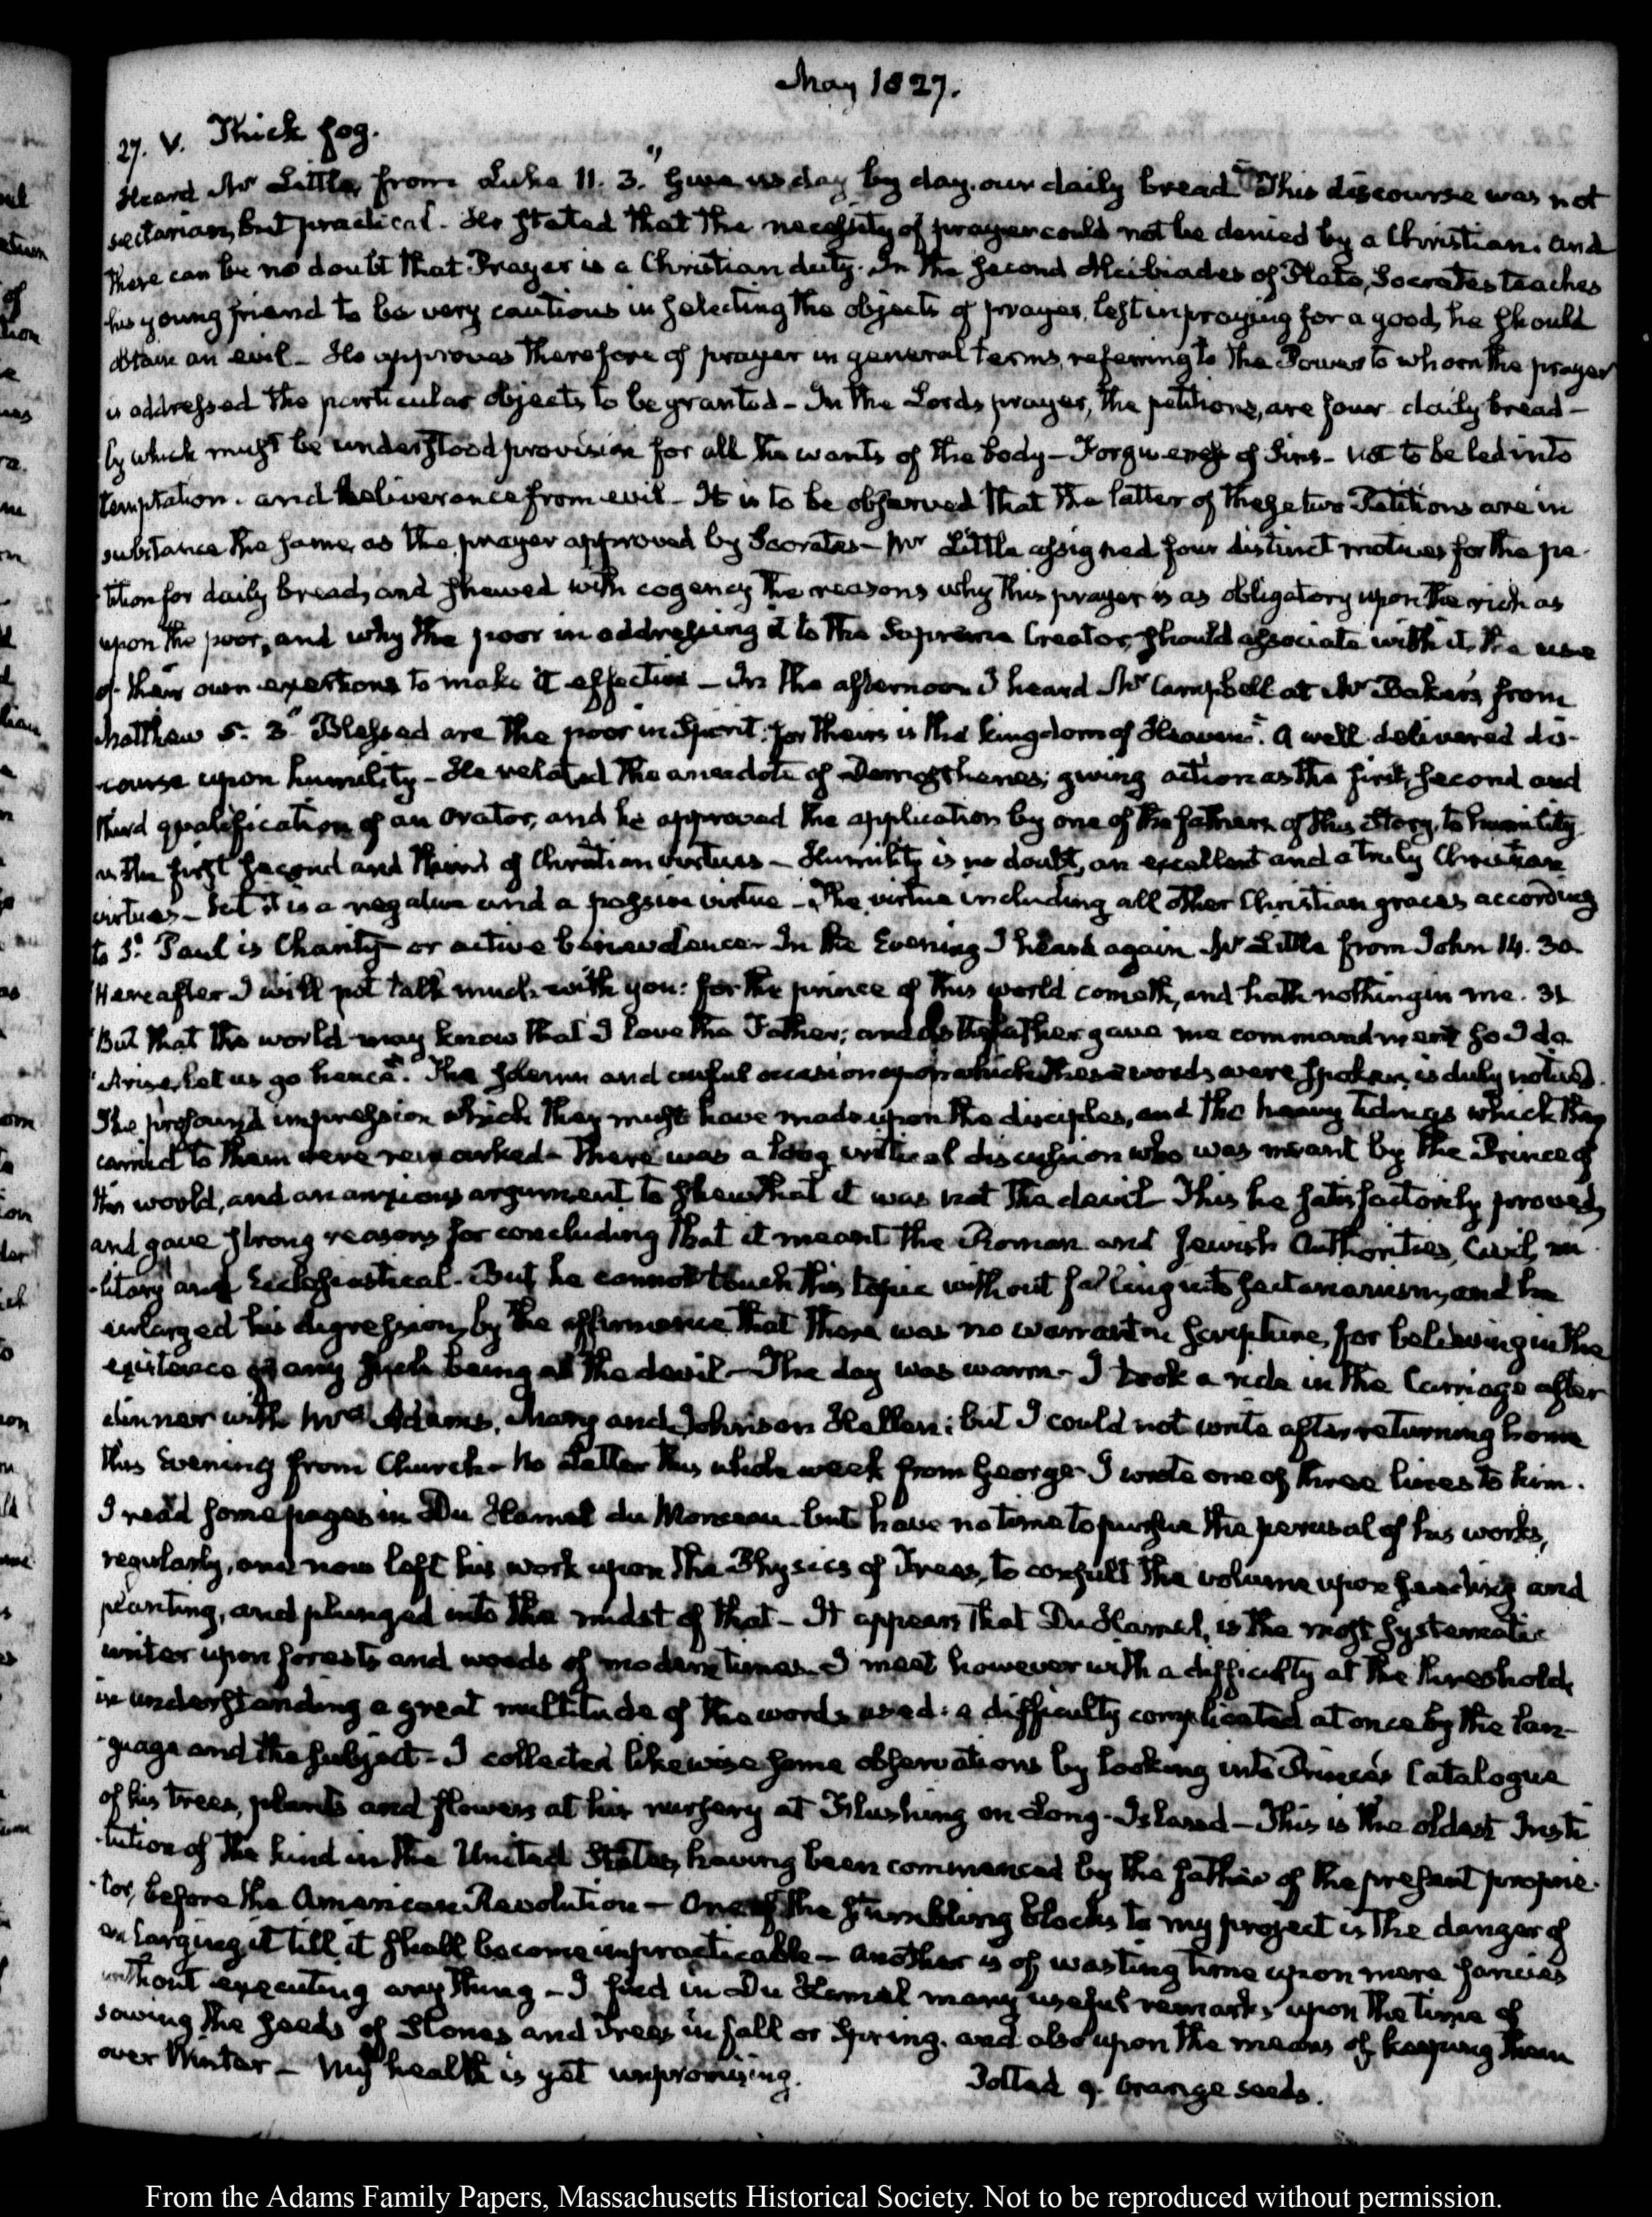 May 1827.
27. V. Thick fog.
Heard Mr Little, from Luke 11. 3. "Give us day by day our daily bread" This discourse was not
sectarian, but practical. He stated that the necessity of prayer could not be denied by a Christian. and
there can be no doubt that Prayer is a Christian duty. In the second Alcibiades of Plato, Socrates teaches
his young friend to be very cautious in selecting the objects of prayer, lest in praying for a good, he should
obtain an evil - He approves therefore of prayer in general terms, referring to the Power to whom the prayer
is addressed the particular objects to be granted - In the Lords prayer, the petitions, are four - daily bread -
by which must be understood provision for all the wants of the body - Forgiveness of Sins - not to be led into
temptation. and deliverance from evil - It is to be observed that the latter of these two Petitions are in
substance the same, as the prayer approved by Socrates - Mr Little assigned four distinct motives for the pe-
tition for daily bread, and shewed with cogency the reasons why this prayer is as obligatory upon the rich as
upon the poor, and why the poor in addressing it to the Supreme Creator, should associate with it, the use
of their own exertions to make it effective - In the afternoon I heard Mr Campbell at Mr Baker's from
Matthew 5. 3 "Blessed are the poor in Spirit: for theirs is the kingdom of Heaven". A well delivered dis-
course upon humility - He related the anecdote of Demosthenes; giving action as the first, second and
third qualification of an Orator, and he approved the application by one of the fathers of this Story, to humility
as the first second and third of Christian virtues - Humility is no doubt, an excellent and a truly Christian
virtue - but it is a negative and a passive virtue - The virtue including all other Christian graces according
to St. Paul is Charity - or active benevolence - In the Evening I heard again Mr Little from John 14. 30.
"Hereafter I will not talk much with you: for the prince of this world cometh, and hath nothing in me. 31
"But that the world may know that I love the Father; and as the father gave me commandment so I do.
"Arise, let us go hence". The solemn and awful occasion upon which these words were spoken, is duly noticed.
The profound impression which they must have made upon the disciples, and the heavy tidings which they
carried to them were remarked - There was a long critical discussion who was meant by the Prince of
this world, and an anxious argument to shew that it was not the devil. This he satisfactorily proved,
and gave strong reasons for concluding that it meant the Roman and Jewish Authorities, Civil, mi-
litary and Ecclesiastical. But he cannot touch this topic without falling into sectarianism, and he
enlarged his digression, by the affirmance that there was no warrant in Scripture, for believing in the
existence of any such being as the devil - The day was warm - I took a ride in the Carriage after
dinner with Mrs Adams, Mary and Johnson Hellen; but I could not write after returning home
this Evening from Church - No Letter this whole week from George - I wrote one of three lines to him.
I read some pages in Du Hamel du Monceau - but have no time to pursue the perusal of his works,
regularly, and now left his work upon the Physics of Trees, to consult the volume upon seeding and
planting, and plunged into the midst of that - It appears that Du Hamel, is the most systematic
writer upon forests and woods of modern times. I meet however with a difficulty at the threshold,
in understanding a great multitude of the words used: a difficulty complicated at once by the lan-
guage and the subject - I collected likewise some observations by looking into Prince's Catalogue
of his trees, plants and flowers at his nursery at Flushing on Long-Island - This is the oldest Insti-
tution of the kind in the United States, having been commenced by the father of the present proprie-
tor, before the American Revolution - One of the stumbling blocks to my project is the danger of
enlarging it till it shall become impracticable - Another is of wasting time upon mere fancies
without executing any thing - I find in Du Hamel many useful remarks upon the time of
sowing the seeds of Stones and Trees in fall or Spring. and also upon the means of keeping them
over Winter - My health is yet unpromising. Potted 9. Orange seeds.
From the Adams Family Papers, Massachusetts Historical Society. Not to be reproduced without permission.